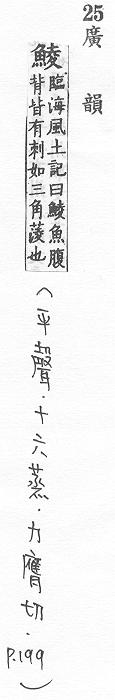 25廣韻
鯪臨海風土記曰鯪魚腹
背皆有刺如三角菱也
(平聲.十六蒸.力膺切.P.199)